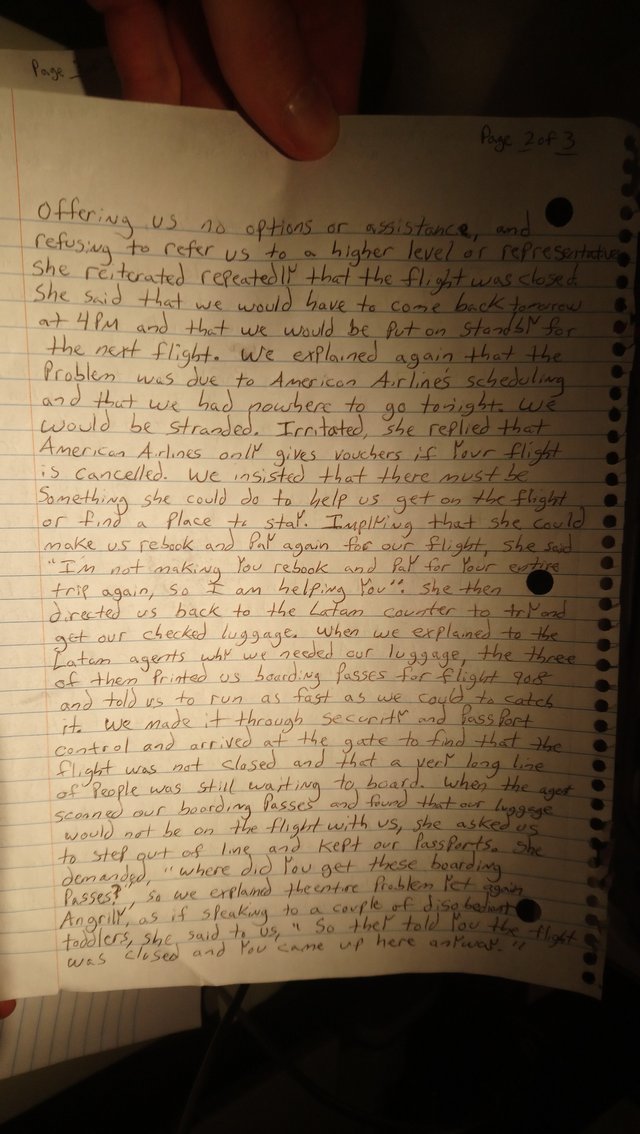 Page
Page 2 of 3
Offering us no options or assistance, and
refusing to refer us to a higher level or representative
she reiterated repeatedly that the flight was closed.
She said that we would have to come back tomorrow
at 4PM and that we would be put on standby for
the next flight. We explained again that the
Problem was due to American Airline's scheduling
and that we had nowhere to go tonight. We
would be stranded. Irritated, she replied that
American Airlines only gives vouchers if your flight
is cancelled. We insisted that there must be
Something she could do to help us get on the flight
or find a place to stay. Implying that she could
make us rebook and Pay again for our flight, she said
"I'm not making you rebook and Pay for your entire
trip again, so I am helping you". She then
directed us back to the Latam counter to try and
get our checked luggage. When we explained to the
Latam agents why we needed our luggage, the three
of them printed us boarding Passes for flight 908
and told us to run as fast as we could to catch
it. We made it through security and Passport
control and arrived at the gate to find that the
flight was not closed and that a very long line
of People was still waiting to board. When the agent
scanned our boarding Passes and found that our luggage
would not be on the flight with us, she asked us
to step out of line and kept our Passports. She
demanded, "where did you get these boarding
Passes?", so we explained the entire Problem yet again
Angrily, as if speaking to a couple of disobedient
toddlers, she said to us, "So they told you the flight
was closed and you came up here anyway."